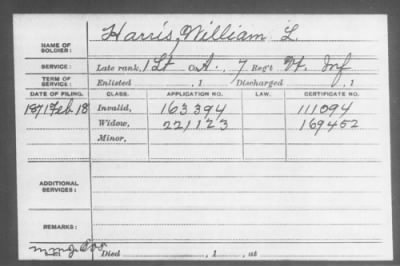 NAME OF SOLDIER: Harris, William L.
SERVICE: Late rank, 1 Lt Co. A., 7 Reg't Vt. Inf
TERM OF SERVICE: Enlisted , 1 / Discharged , 1
DATE OF FILING. CLASS. APPLICATION NO. LAW. CERTIFICATE NO.
1871 Feb 18 Invalid, 163394 111094
Widow, 221123 169452
Minor,
ADDITIONAL SERVICES:
REMARKS:
Died , 1 , at